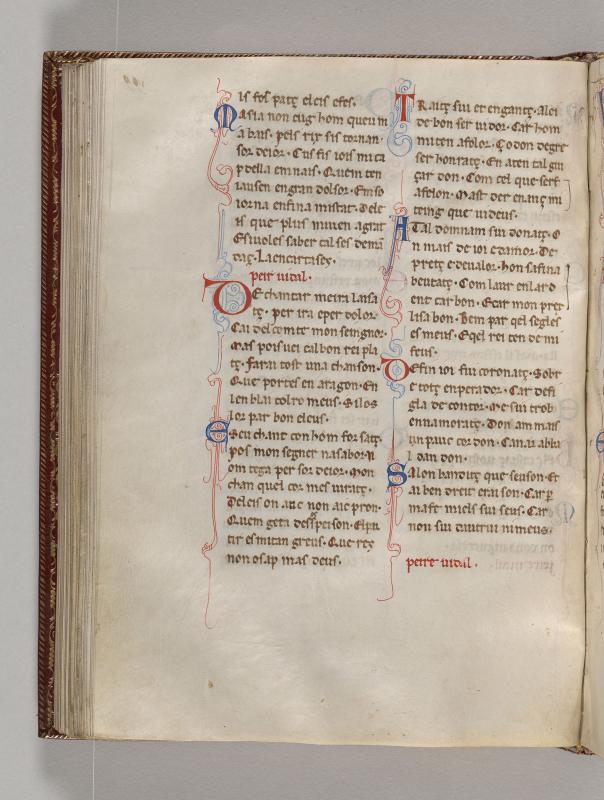 is fos patç eleis efes.
Masia non cug hom queu m
abais. pels rix sis tornan
for deior. Cus fis iois mica
pdella em nais. Quem ten
iausen engran dolsor. Emso
iorna enfina mistat. Dele
is que plus miuen agrat
Esiuoles saber cal ses dem
daç. Laencastaseç.
peir uidal.
De chantar meira laisa
tç. per ira eper dolor.
Cai del comte mon seingnor.
Mas pois uei cal bon rei pla
tç. Farai tost una chanson.
Que portes en aragon. En
len blai coltro meus. Silos
lor par bon eleus.
Eseu chant con hom forsatç.
pos mon segner nasabor. N
om tega per for deior. Mon
chan quel cor mes uiratç.
Deleis on auc non aic pron.
Quem geta desperson. Elpar
tir es mitan greus. Que reç
non osap mas deus.
Traitç sui et engantç. Alei
de bon seruidor. Car hom
miten afolor. Ço don degre
ser honratç. En aten cal gui
çardon. Com cel que serf
afelon. Mast der enanç mi
teing que uideus.
Atal domnam sui donatç. Q
n mais de ioi edamor. De
pretç edeualor. hon safina
beutatç. Com laur enlard
ent carbon. Ecar mon prec
lisa bon. Bem par qel segles
es meus. Eqel rei ten de mi
feus.
Defin ioi sui coronatç. Sobr
e totç enperador. Car defi
gla de contor. Me sui trob
ennamoratç. Don am mais
un pauc cordon. Canar abba
l dan don.
Salon banditç que seuson. Et
ai ben dreit eraison. Carp
mast miels sui seus. Car
non sui dautrui nimeus.
peire uidal.